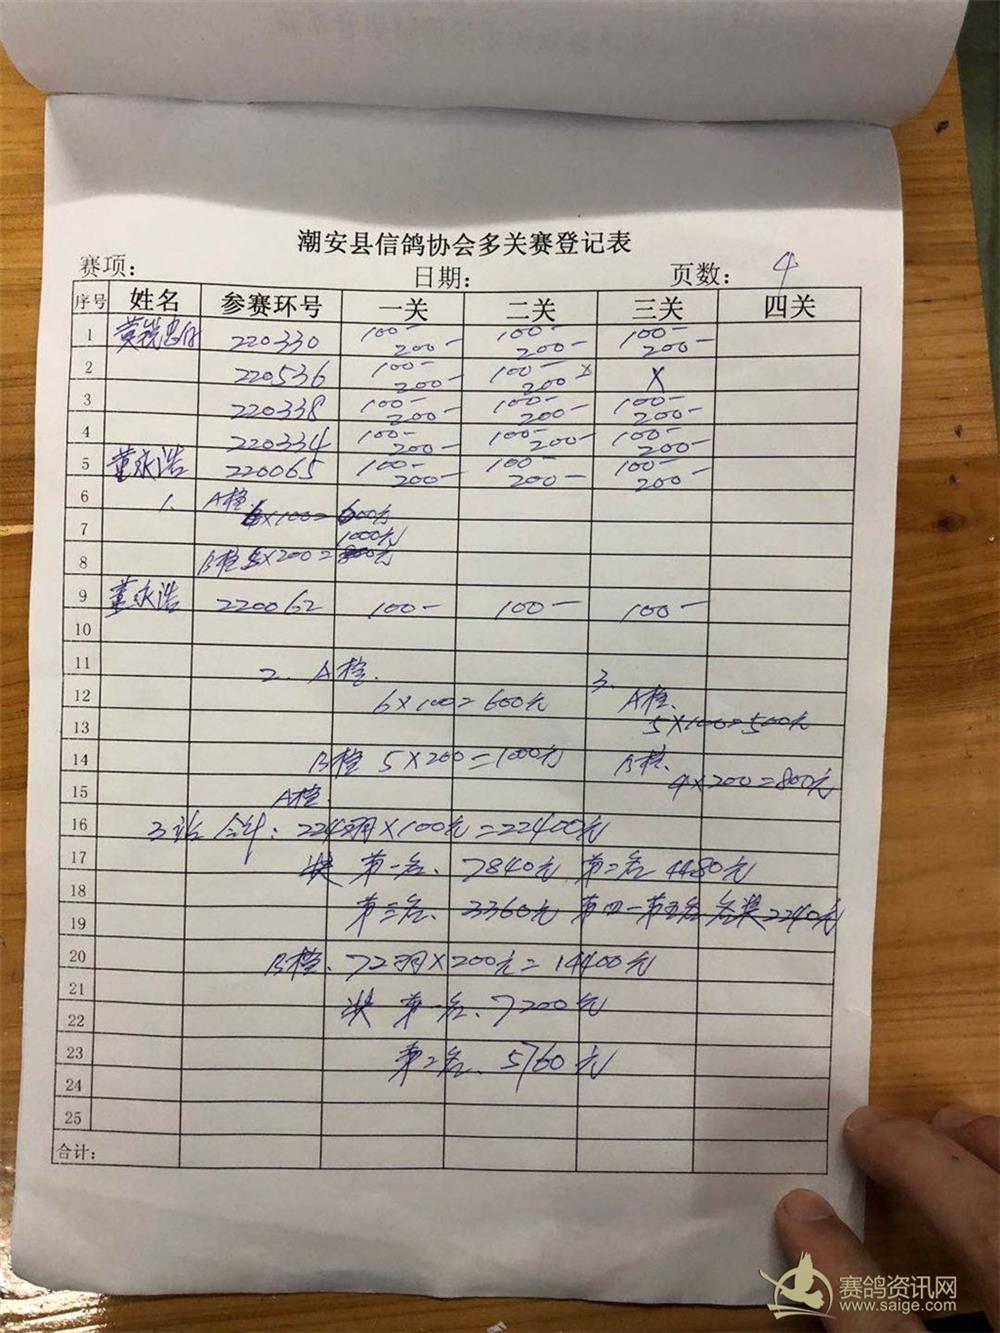 潮安县信鸽协会多关赛登记表
赛项： 日期： 页数： 4
序号 姓名 参赛环号 一关 二关 三关 四关
1 黄锐忠 220330 100- 200- 100- 200- 100- 200-
2 220536 100- 200- 100- 200 x X
3 220338 100- 200- 100- 200- 100- 200-
4 220334 100- 200- 100- 200- 100- 200-
5 董永浩 220065 100- 200- 100- 200- 100- 200-
6 1、 A档 6×100=600元
7 1000元
8 B档 5×200=元
9 董永浩 220062 100- 100- 100-
10
11 2、A档. 3.
12 6×100=600元 A档.
13 5×100=500元
14 B档 5×200=1000元 B档.
15 A档. 4×200=800元
16 3站 合计：224羽×100元=22400元
17 奖 第一名、7840元 第二名 4480元
18 第三名、3360元 第四-第五名 各奖2240元
19
20 B档、72羽×200元=14400元
21 奖 第一名、7200元
22
23 第二名、5760元
24
25
合计：
赛鸽资讯网
www.saige.com